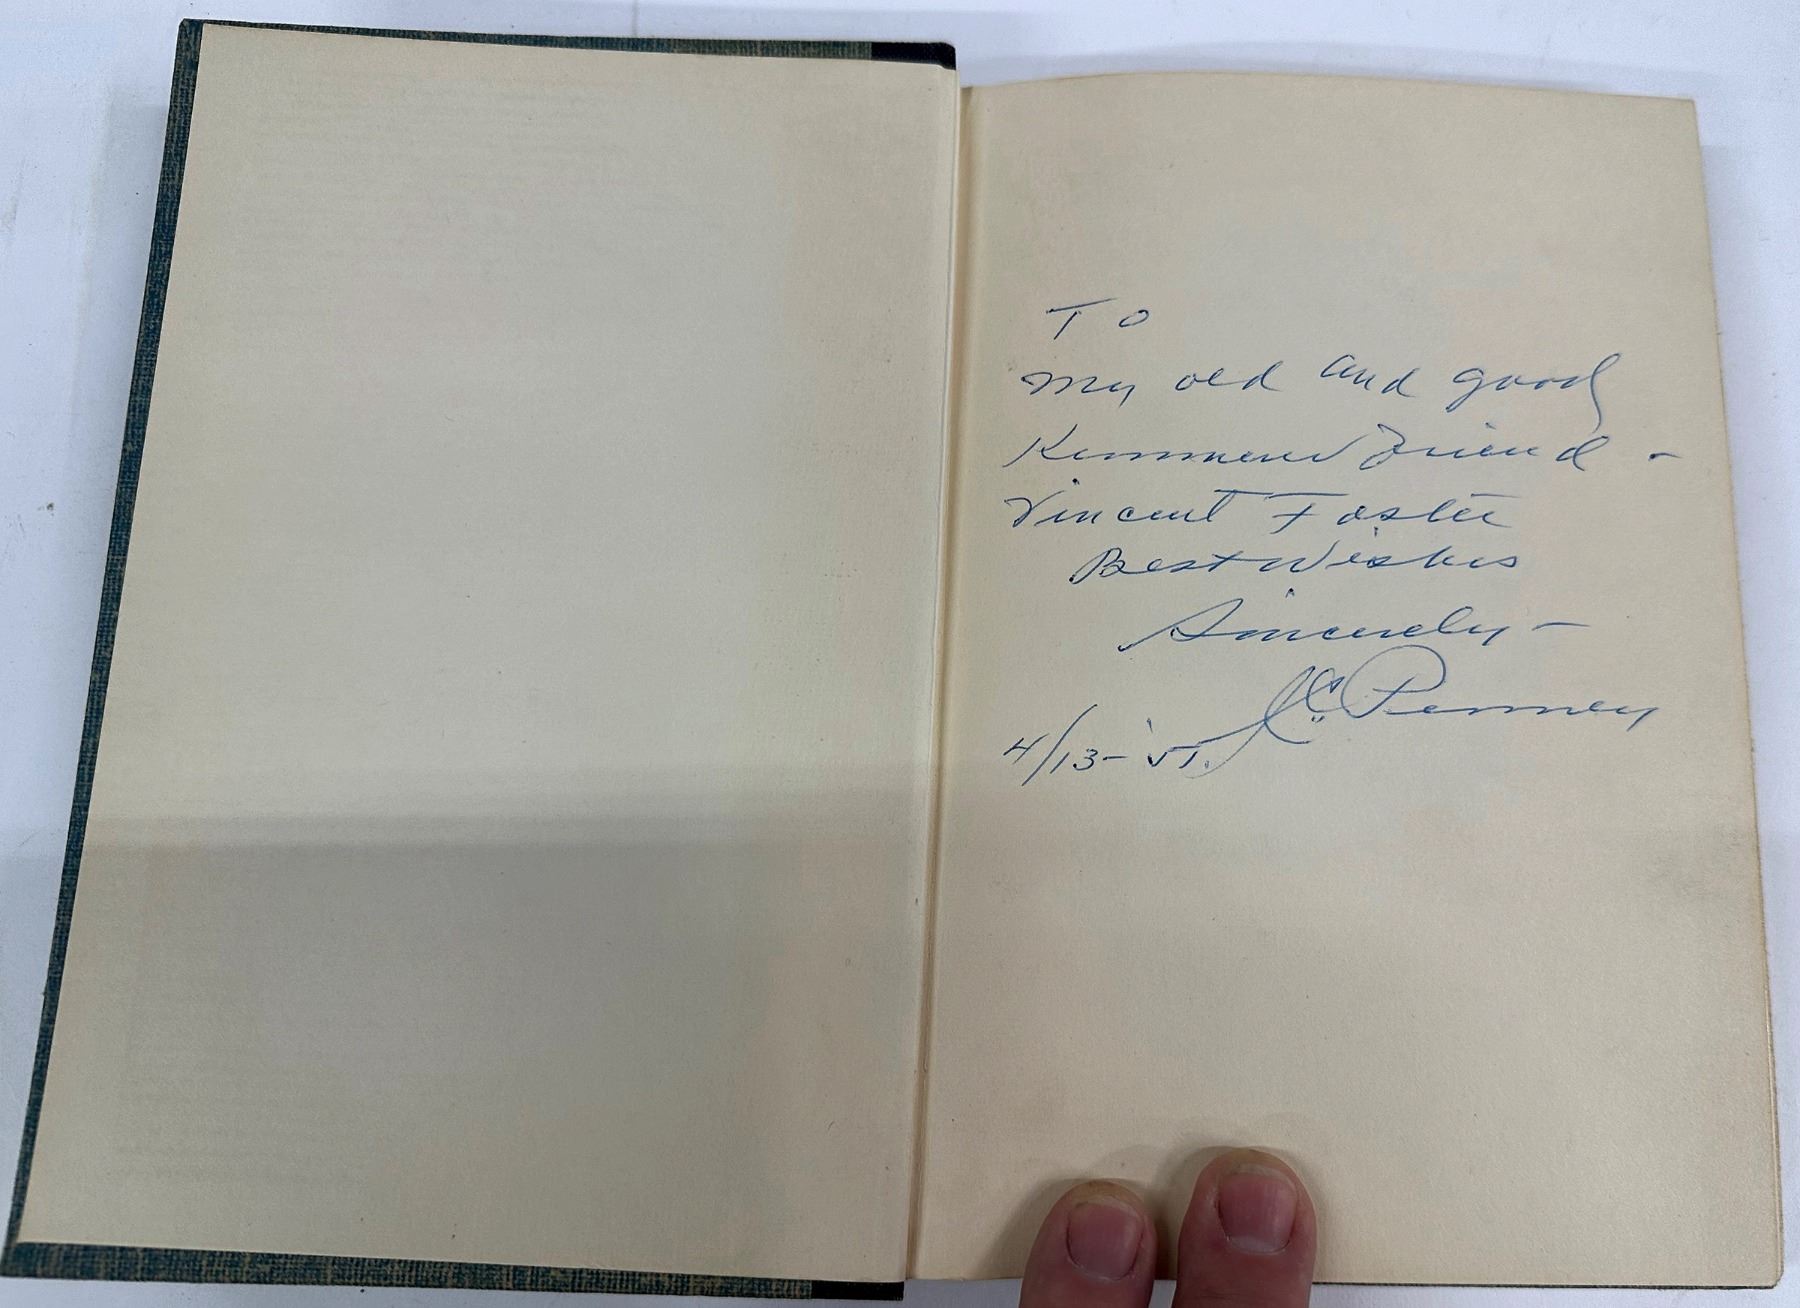 To
My old and good
Kemmerer Friend -
Vincent Foster
Best Wishes
Sincerely -
J C Penney
4/13-'51.